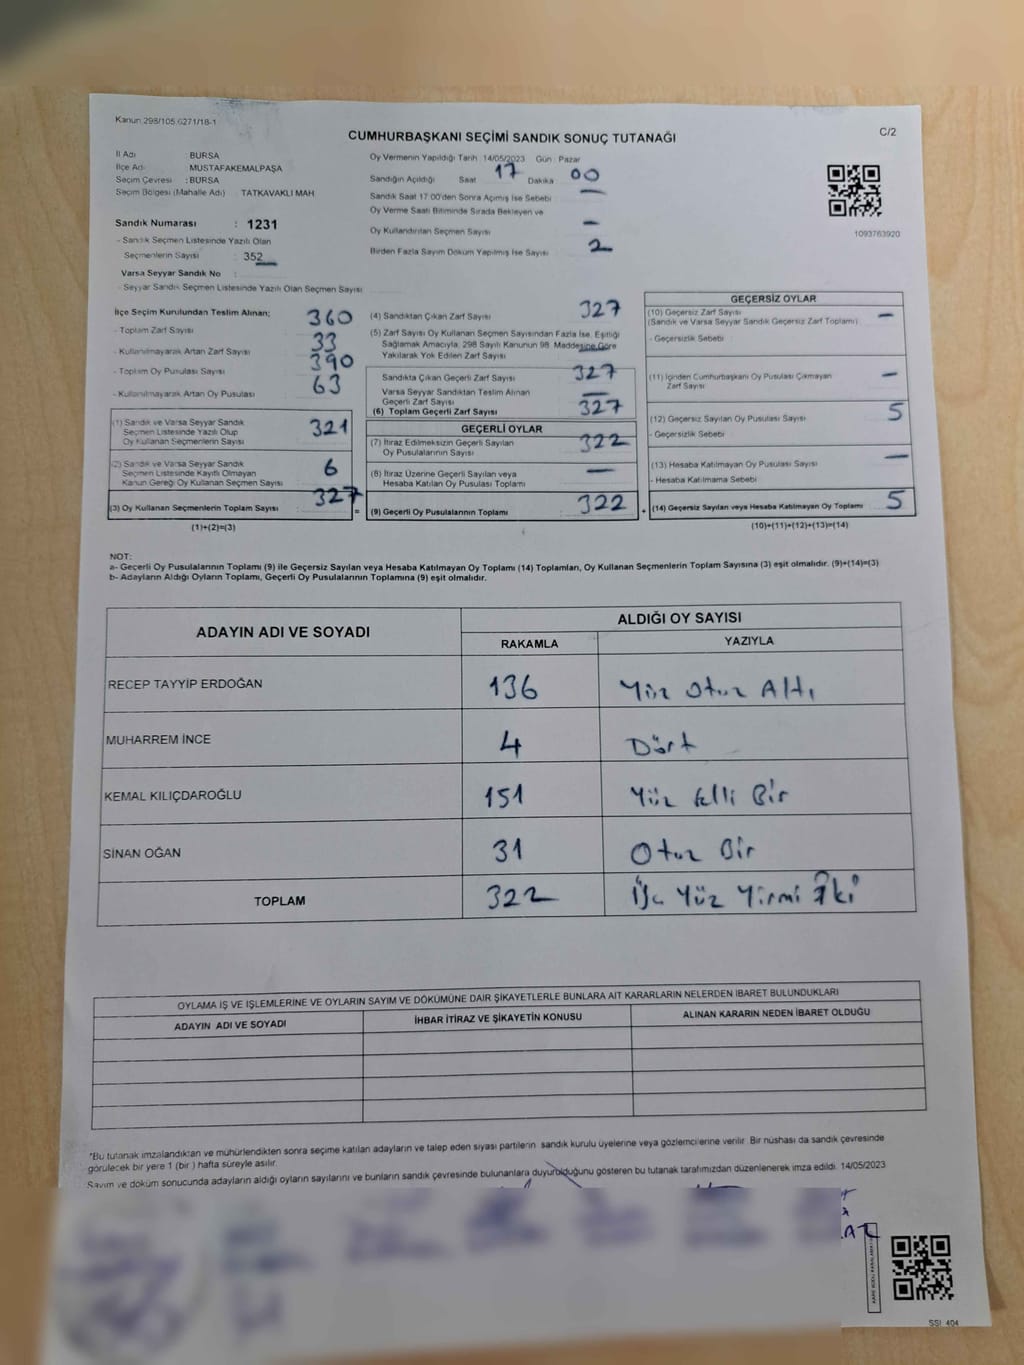 Kanun 298/105 6271/18-1
CUMHURBAŞKANI SEÇİMİ SANDIK SONUÇ TUTANAĞI
C/2
İl Adı BURSA
İlçe Adı MUSTAFAKEMALPAŞA
Seçim Çevresi : BURSA
Seçim Bölgesi (Mahalle Adı) TATKAVAKLI MAH
Oy Vermenin Yapıldığı Tarih 14/05/2023 Gün : Pazar
Sandığın Açıldığı Saat 17 Dakika 00
Sandık Saat 17:00'den Sonra Açılmış İse Sebebi —
Oy Verme Saati Bitiminde Sırada Bekleyen ve
Oy Kullandırılan Seçmen Sayısı —
Birden Fazla Sayım Döküm Yapılmış İse Sayısı 2
1093763920
Sandık Numarası : 1231
- Sandık Seçmen Listesinde Yazılı Olan
Seçmenlerin Sayısı : 352
Varsa Seyyar Sandık No :
- Seyyar Sandık Seçmen Listesinde Yazılı Olan Seçmen Sayısı
İlçe Seçim Kurulundan Teslim Alınan;
- Toplam Zarf Sayısı 360
- Kullanılmayarak Artan Zarf Sayısı 33
- Toplam Oy Pusulası Sayısı 390
- Kullanılmayarak Artan Oy Pusulası 63
(1) Sandık ve Varsa Seyyar Sandık
Seçmen Listesinde Yazılı Olup
Oy Kullanan Seçmenlerin Sayısı 321
(2) Sandık ve Varsa Seyyar Sandık
Seçmen Listesinde Kayıtlı Olmayan
Kanun Gereği Oy Kullanan Seçmen Sayısı 6
(3) Oy Kullanan Seçmenlerin Toplam Sayısı 327
(1)+(2)=(3)
(4) Sandıktan Çıkan Zarf Sayısı 327
(5) Zarf Sayısı Oy Kullanan Seçmen Sayısından Fazla İse, Eşitliği
Sağlamak Amacıyla, 298 Sayılı Kanunun 98. Maddesine Göre
Yakılarak Yok Edilen Zarf Sayısı —
Sandıkta Çıkan Geçerli Zarf Sayısı 327
Varsa Seyyar Sandıktan Teslim Alınan
Geçerli Zarf Sayısı —
(6) Toplam Geçerli Zarf Sayısı 327
GEÇERLİ OYLAR
(7) İtiraz Edilmeksizin Geçerli Sayılan
Oy Pusulalarının Sayısı 322
(8) İtiraz Üzerine Geçerli Sayılan veya
Hesaba Katılan Oy Pusulası Toplamı —
= (9) Geçerli Oy Pusulalarının Toplamı 322
GEÇERSİZ OYLAR
(10) Geçersiz Zarf Sayısı —
(Sandık ve Varsa Seyyar Sandık Geçersiz Zarf Toplamı)
- Geçersizlik Sebebi :
(11) İçinden Cumhurbaşkanı Oy Pusulası Çıkmayan
Zarf Sayısı —
(12) Geçersiz Sayılan Oy Pusulası Sayısı 5
- Geçersizlik Sebebi :
(13) Hesaba Katılmayan Oy Pusulası Sayısı —
- Hesaba Katılmama Sebebi :
+ (14) Geçersiz Sayılan veya Hesaba Katılmayan Oy Toplamı 5
(10)+(11)+(12)+(13)=(14)
NOT:
a- Geçerli Oy Pusulalarının Toplamı (9) ile Geçersiz Sayılan veya Hesaba Katılmayan Oy Toplamı (14) Toplamları, Oy Kullanan Seçmenlerin Toplam Sayısına (3) eşit olmalıdır. (9)+(14)=(3)
b- Adayların Aldığı Oyların Toplamı, Geçerli Oy Pusulalarının Toplamına (9) eşit olmalıdır.
ADAYIN ADI VE SOYADI
ALDIĞI OY SAYISI
RAKAMLA YAZIYLA
RECEP TAYYİP ERDOĞAN 136 Yüz Otuz Altı
MUHARREM İNCE 4 Dört
KEMAL KILIÇDAROĞLU 151 Yüz Elli Bir
SİNAN OĞAN 31 Otuz Bir
TOPLAM 322 Üç Yüz Yirmi İki
OYLAMA İŞ VE İŞLEMLERİNE VE OYLARIN SAYIM VE DÖKÜMÜNE DAİR ŞİKAYETLERLE BUNLARA AİT KARARLARIN NELERDEN İBARET BULUNDUKLARI
ADAYIN ADI VE SOYADI İHBAR İTİRAZ VE ŞİKAYETİN KONUSU ALINAN KARARIN NEDEN İBARET OLDUĞU
*Bu tutanak imzalandıktan ve mühürlendikten sonra seçime katılan adayların ve talep eden siyasi partilerin sandık kurulu üyelerine veya gözlemcilerine verilir. Bir nüshası da sandık çevresinde
görülecek bir yere 1 (bir ) hafta süreyle asılır.
Sayım ve döküm sonucunda adayların aldığı oyların sayılarını ve bunların sandık çevresinde bulunanlara duyurulduğunu gösteren bu tutanak tarafımızdan düzenlenerek imza edildi. 14/05/2023
SSI: 404